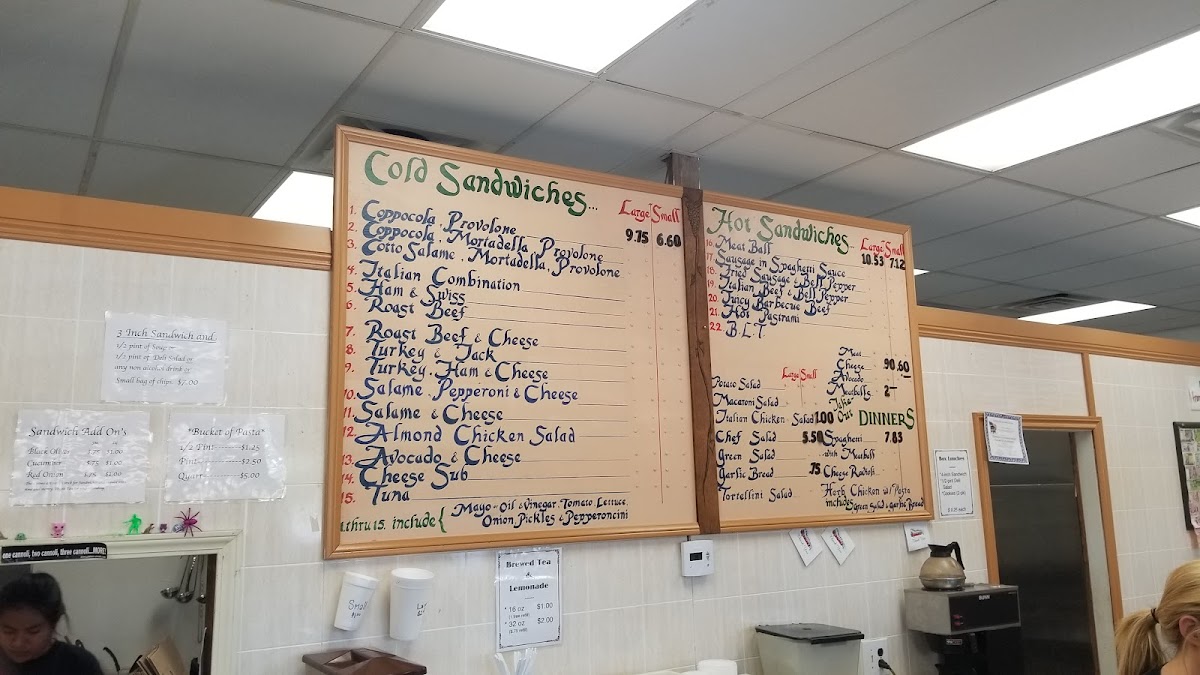 Cold Sandwiches...
Large Small
1. Coppocola, Provolone 9.75 6.60
2. Coppocola, Mortadella, Provolone
3. Cotto Salame, Mortadella, Provolone
4. Italian Combination
5. Ham & Swiss
6. Roast Beef
7. Roast Beef & Cheese
8. Turkey & Jack
9. Turkey, Ham & Cheese
10. Salame, Pepperoni & Cheese
11. Salame & Cheese
12. Almond Chicken Salad
13. Avocado & Cheese
14. Cheese Sub
15. Tuna
1 thru 15. include {
Mayo - Oil & Vinegar, Tomato Lettuce,
Onion, Pickles & Pepperoncini
Hot Sandwiches...
Large Small
16. Meat Ball 10.53 7.12
17. Sausage in Spaghetti Sauce
18. Fried Sausage & Bell Pepper
19. Italian Beef & Bell Pepper
20. Juicy Barbecue Beef
21. Hot Pastrami
22. B.L.T.
Meat
Cheese .90 .60
Avocado
Meatballs 2
Large Small
Potato Salad
Macaroni Salad
Italian Chicken Salad 1.00
Chef Salad 5.50
Green Salad
Garlic Bread .75
Tortellini Salad
Take Out DINNERS
Spaghetti 7.85
with Meatball
Cheese Ravioli
Herb Chicken w/ Pasta
includes Green Salad & Garlic Bread
3 Inch Sandwich and
1/2 pint of Soup or
1/2 pint of Deli Salad or
any non alcohol drink or
Small bag of chips $7.00
Sandwich Add On's
Black Olives .75 $1.00
Cucumber $.75 $1.00
Red Onion $.75 $1.00
*Bucket of Pasta*
1/2 Pint $1.25
Pint $2.50
Quart $5.00
one cannoli, two cannoli, three cannoli...MORE!
Small
Brewed Tea
&
Lemonade
* 16 oz $1.00
* 32 oz $2.00
BUNN